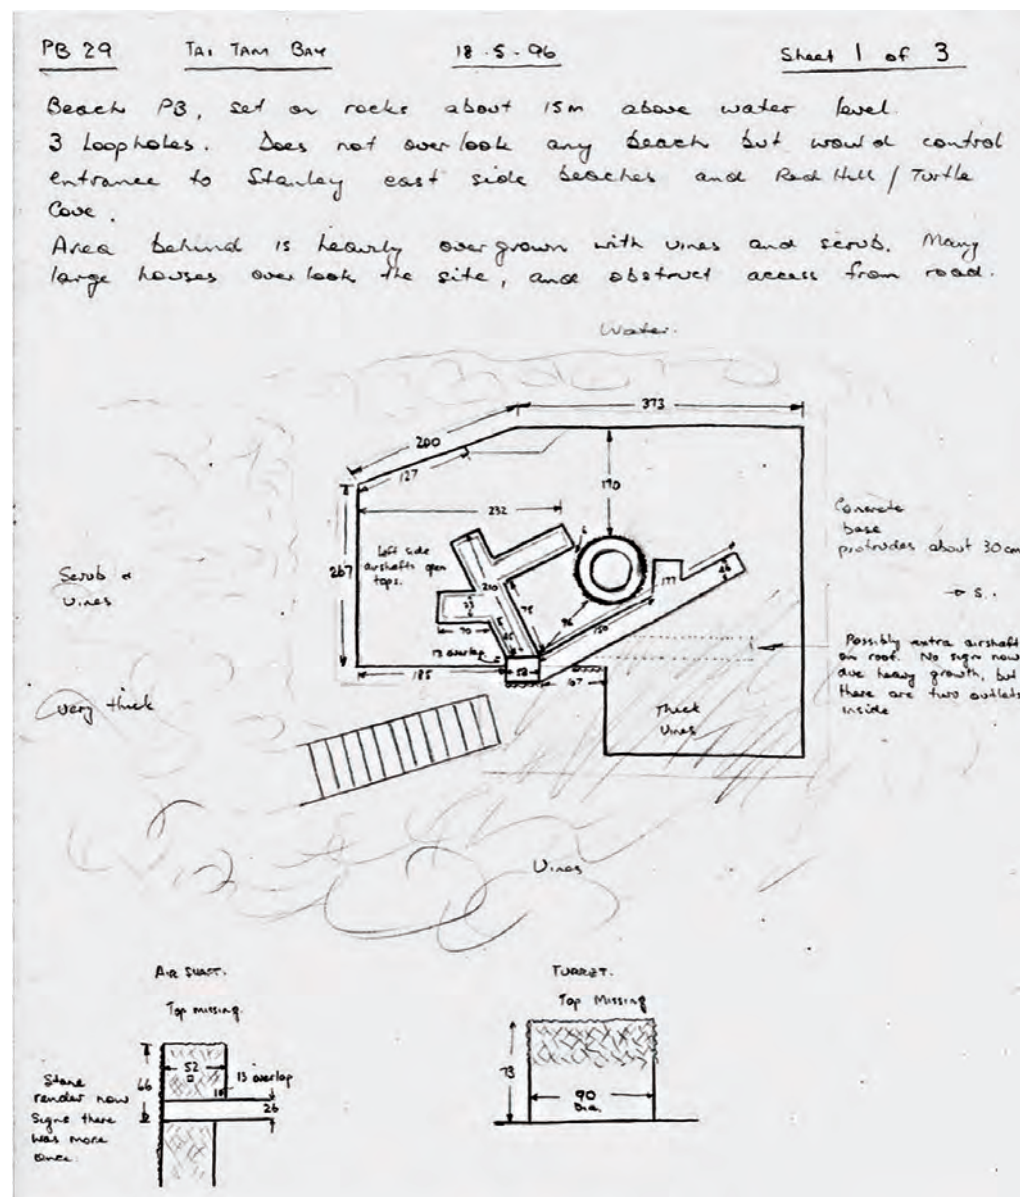 PB 29 TAI TAM BAY 18-5-96 Sheet 1 of 3
Beach PB, set on rocks about 15m above water level.
3 Loopholes. Does not overlook any beach but would control
entrance to Stanley east side beaches and Red Hill / Turtle
Cove.
Area behind is heavily overgrown with vines and scrub. Many
large houses overlook the site, and obstruct access from road.
Water.
373
200
127
190
232
6
Left side
airshafts open
tops.
267
210
75
23
70
5
45
96
150
177
26
13 overlap
52
185
107
Concrete
base
protrudes about 30cm
→ S.
Possibly extra airshaft
on roof. No sign now
due heavy growth, but
there are two outlets
inside
Scrub &
Vines
very thick
Thick
Vines
Vines
AIR SHAFT.
Top missing.
52
66
13 overlap
10
26
Stone
render now
Signs there
was more
once.
TURRET.
Top Missing
73
90
Dia.